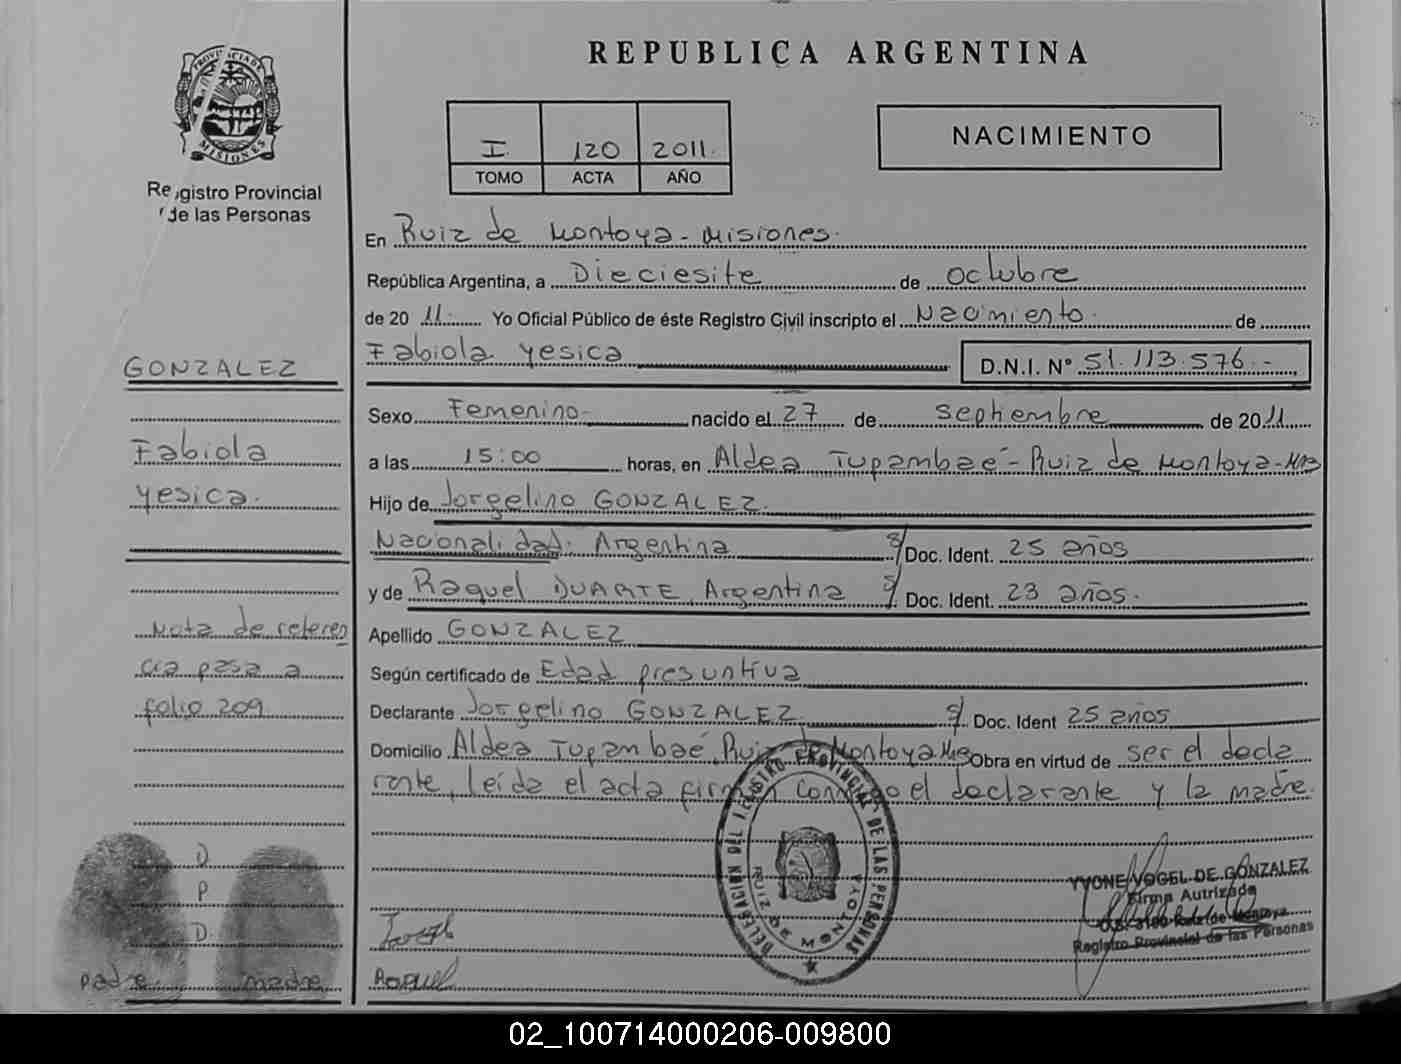 REPUBLICA ARGENTINA
PROVINCIA DE MISIONES
Registro Provincial
de las Personas
I 120 2011
TOMO ACTA AÑO
NACIMIENTO
En Ruiz de Montoya - Misiones
República Argentina, a Dieciesite de octubre
de 20 11 Yo Oficial Público de éste Registro Civil inscripto el Nacimiento de
Fabiola Yesica D.N.I. Nº 51.113.576.-
Sexo Femenino- nacido el 27 de septiembre de 2011
a las 15:00 horas, en Aldea Tupambaé - Ruiz de Montoya - Mns
Hijo de Jorgelino GONZALEZ
Nacionalidad: Argentina s/ Doc. Ident. 25 años
y de Raquel DUARTE, Argentina s/ Doc. Ident. 23 años.
Apellido GONZALEZ
Según certificado de Edad presuntiva
Declarante Jorgelino GONZALEZ s/ Doc. Ident 25 años
Domicilio Aldea Tupambaé, Ruiz de Montoya Mis Obra en virtud de ser el decla
rante, leída el acta firman conmigo el declarante y la madre.
GONZALEZ
Fabiola
Yesica.
Nota de referen
cia pasa a
folio 209
D
P
D.
padre madre
Raquel
DELEGACIÓN DEL REGISTRO PROVINCIAL DE LAS PERSONAS
RUIZ DE MONTOYA
YVONE VOGEL DE GONZALEZ
Firma Autrizada
Ruiz de Montoya
Registro Provincial de las Personas
02_100714000206-009800